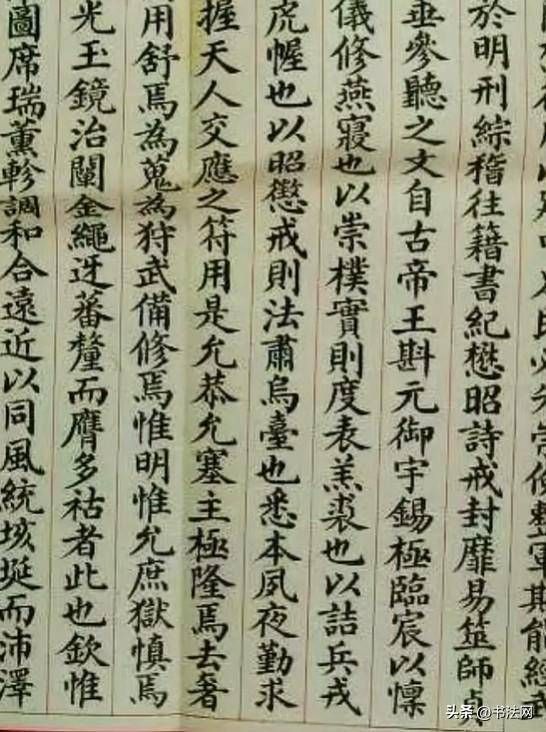 於明刑綜稽往籍書紀懋昭詩戒封靡易筮師貞
垂參聽之文自古帝王斟元御宇錫極臨宸以懍
儀修燕寢也以崇樸實則度表羔裘也以詰兵戎
虎幄也以昭懲戒則法肅烏臺也悉本夙夜勤求
握天人交應之符用是允恭允塞主極隆焉去奢
用舒焉為蒐為狩武備修焉惟明惟允庶獄慎焉
光玉鏡治闡金繩迓蕃釐而膺多祜者此也欽惟
圖席瑞薰軫調和合遠近以同風統垓埏而沛澤
头条 @书法网